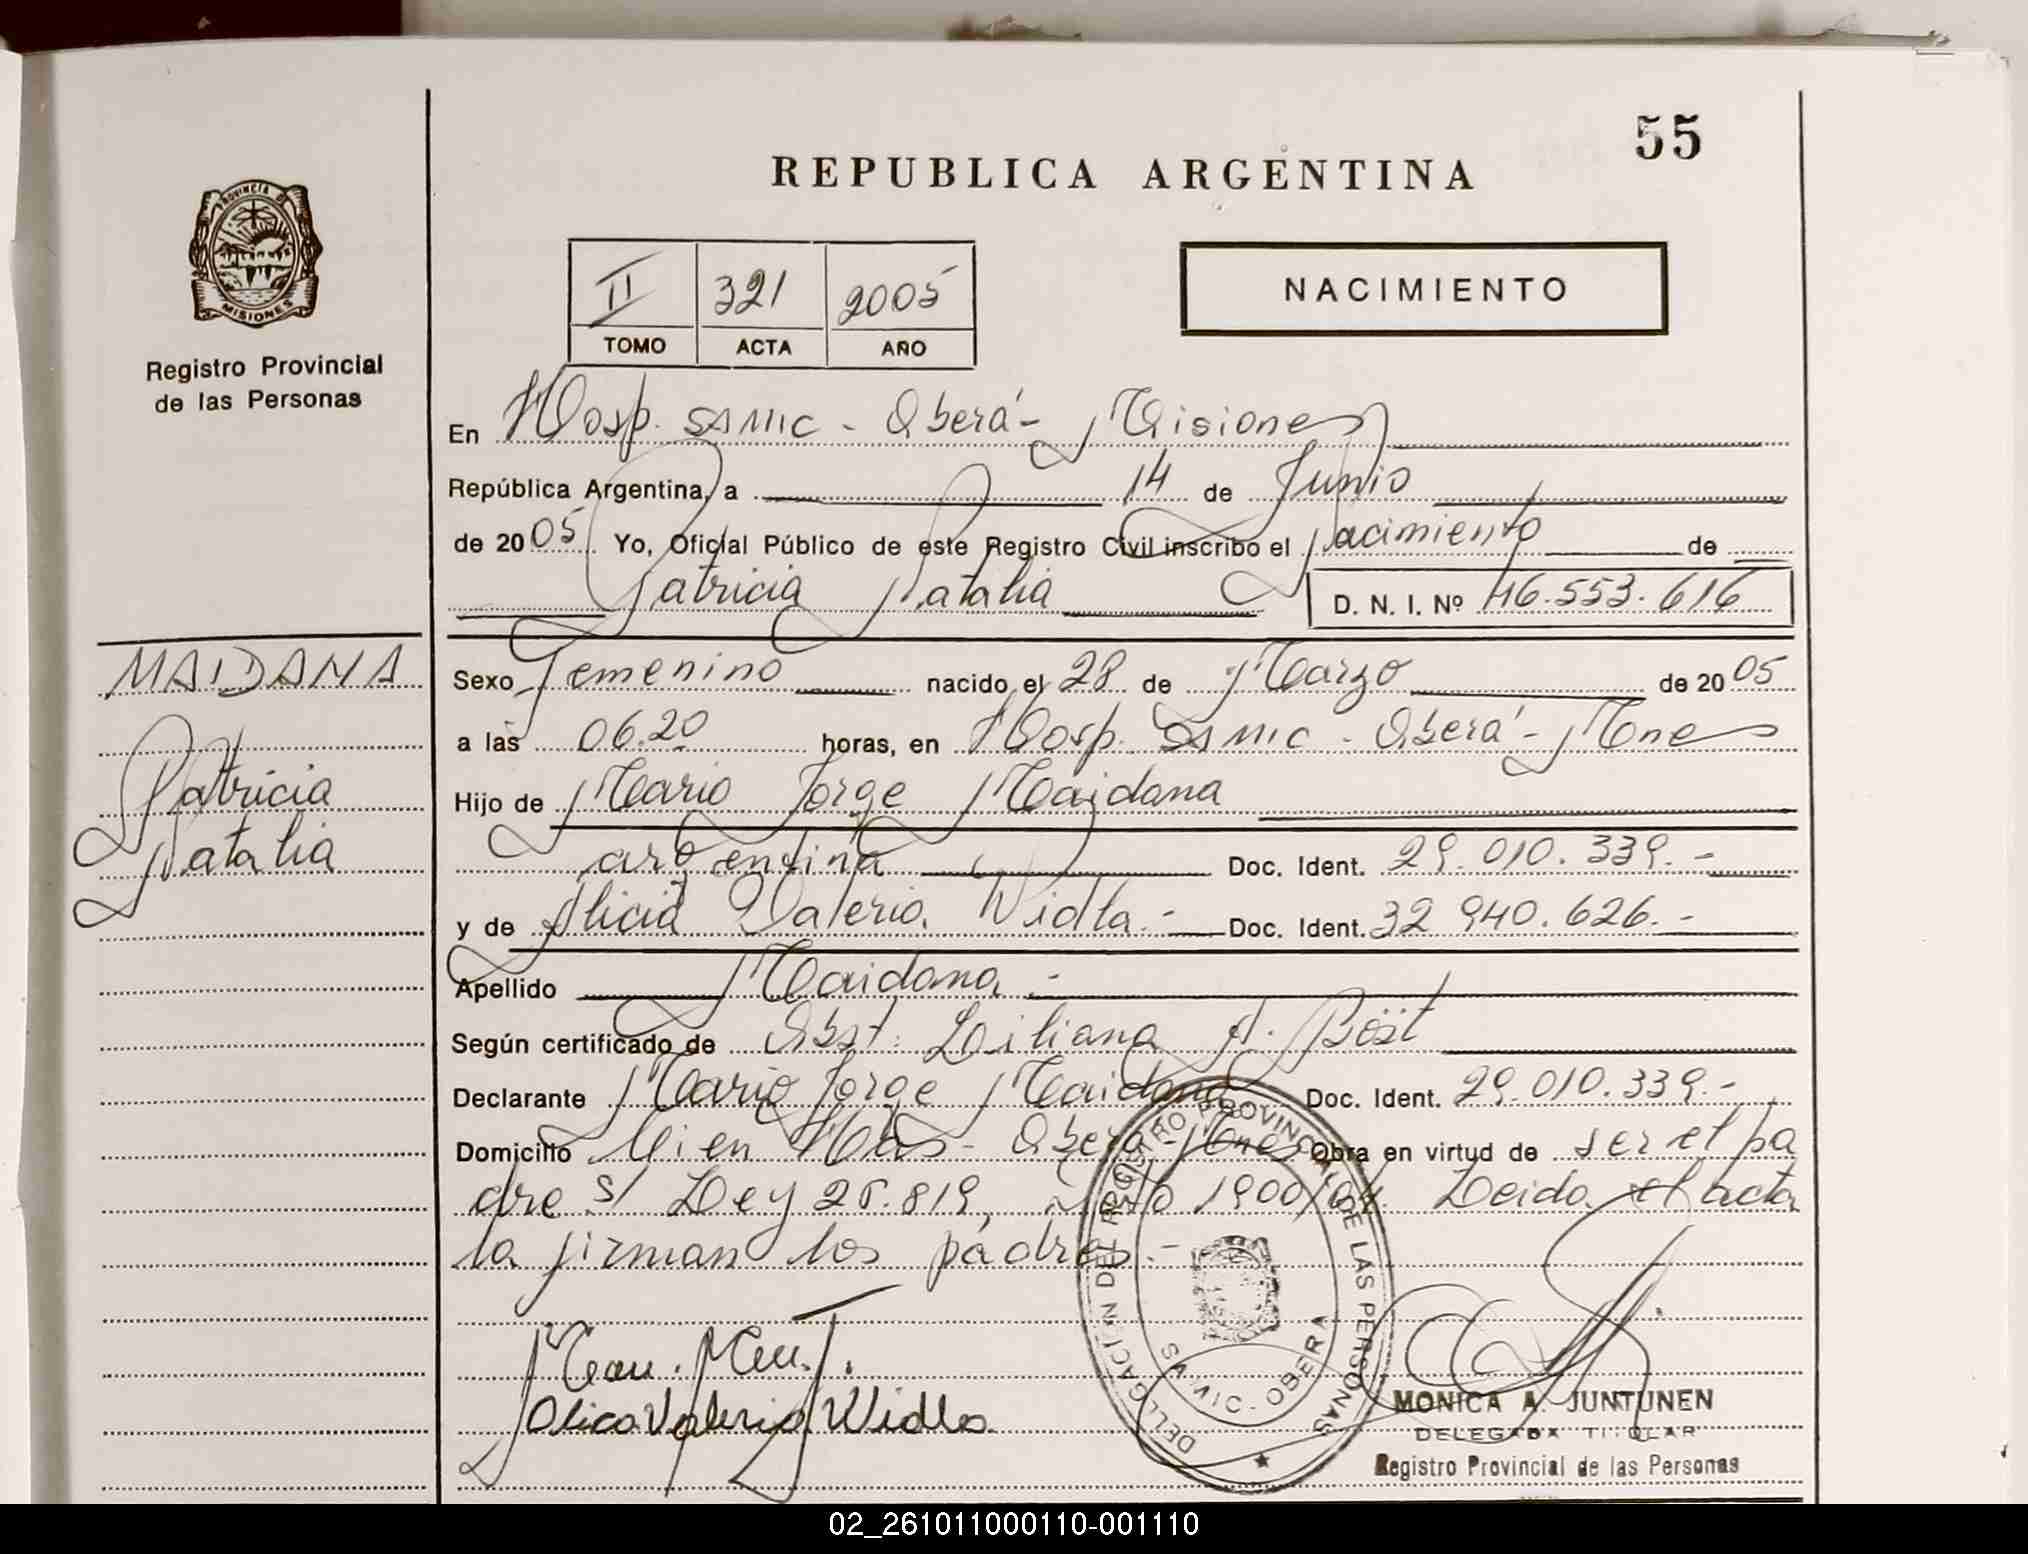 55
REPUBLICA ARGENTINA
PROVINCIA DE
MISIONES
Registro Provincial
de las Personas
II 321 2005
TOMO ACTA AÑO
NACIMIENTO
En Hosp. SAMIC - Oberá - Misiones
República Argentina, a 14 de Junio
de 2005 Yo, Oficial Público de este Registro Civil inscribo el Nacimiento de
Patricia Natalia
D. N. I. Nº 46.553.616
MAIDANA
Patricia
Natalia
Sexo Femenino nacido el 28 de Marzo de 2005
a las 06.20 horas, en Hosp. SAMIC - Oberá - Mnes
Hijo de Mario Jorge Maidana
argentina Doc. Ident. 29.010.339.-
y de Alicia Valeria Widla.- Doc. Ident. 32 940.626.-
Apellido Maidana.-
Según certificado de Obst. Liliana A. Böst
Declarante Mario Jorge Maidana Doc. Ident. 29.010.339.-
Domicilio Oberá - Mnes Obra en virtud de ser el pa
dre s/ Ley 25.819, 1900/04. Leida el acta
la firman los padres.-
Alicia Valeria Widla
DELEGACION DEL REGISTRO PROVINCIAL DE LAS PERSONAS
SAMIC - OBERA
MONICA A. JUNTUNEN
DELEGADA TITULAR
Registro Provincial de las Personas
02_261011000110-001110